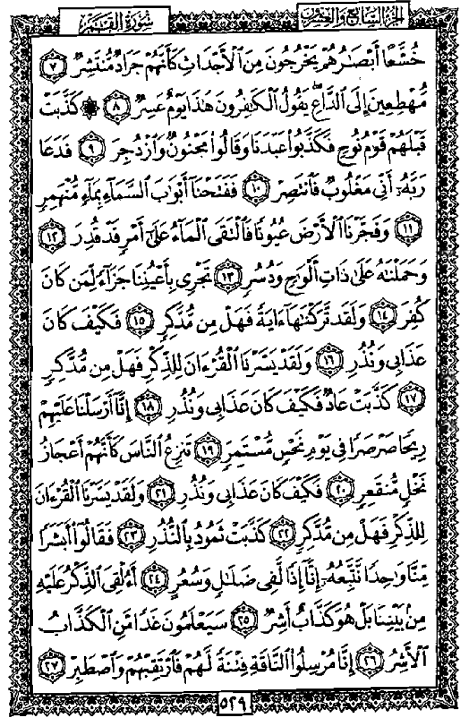 الجزء السابع والعشرون
سورة القمر
خُشَّعًا أَبْصَارُهُمْ يَخْرُجُونَ مِنَ الْأَجْدَاثِ كَأَنَّهُمْ جَرَادٌ مُنْتَشِرٌ ٧
مُهْطِعِينَ إِلَى الدَّاعِ يَقُولُ الْكَافِرُونَ هَذَا يَوْمٌ عَسِرٌ ٨ ۞ كَذَّبَتْ
قَبْلَهُمْ قَوْمُ نُوحٍ فَكَذَّبُوا عَبْدَنَا وَقَالُوا مَجْنُونٌ وَازْدُجِرَ ٩ فَدَعَا
رَبَّهُ أَنِّي مَغْلُوبٌ فَانْتَصِرْ ١٠ فَفَتَحْنَا أَبْوَابَ السَّمَاءِ بِمَاءٍ مُنْهَمِرٍ
١١ وَفَجَّرْنَا الْأَرْضَ عُيُونًا فَالْتَقَى الْمَاءُ عَلَى أَمْرٍ قَدْ قُدِرَ ١٢
وَحَمَلْنَاهُ عَلَى ذَاتِ أَلْوَاحٍ وَدُسُرٍ ١٣ تَجْرِي بِأَعْيُنِنَا جَزَاءً لِمَنْ كَانَ
كُفِرَ ١٤ وَلَقَدْ تَرَكْنَاهَا آيَةً فَهَلْ مِنْ مُدَّكِرٍ ١٥ فَكَيْفَ كَانَ
عَذَابِي وَنُذُرِ ١٦ وَلَقَدْ يَسَّرْنَا الْقُرْآنَ لِلذِّكْرِ فَهَلْ مِنْ مُدَّكِرٍ
١٧ كَذَّبَتْ عَادٌ فَكَيْفَ كَانَ عَذَابِي وَنُذُرِ ١٨ إِنَّا أَرْسَلْنَا عَلَيْهِمْ
رِيحًا صَرْصَرًا فِي يَوْمِ نَحْسٍ مُسْتَمِرٍّ ١٩ تَنْزِعُ النَّاسَ كَأَنَّهُمْ أَعْجَازُ
نَخْلٍ مُنْقَعِرٍ ٢٠ فَكَيْفَ كَانَ عَذَابِي وَنُذُرِ ٢١ وَلَقَدْ يَسَّرْنَا الْقُرْآنَ
لِلذِّكْرِ فَهَلْ مِنْ مُدَّكِرٍ ٢٢ كَذَّبَتْ ثَمُودُ بِالنُّذُرِ ٢٣ فَقَالُوا أَبَشَرًا
مِنَّا وَاحِدًا نَتَّبِعُهُ إِنَّا إِذًا لَفِي ضَلَالٍ وَسُعُرٍ ٢٤ أَءُلْقِيَ الذِّكْرُ عَلَيْهِ
مِنْ بَيْنِنَا بَلْ هُوَ كَذَّابٌ أَشِرٌ ٢٥ سَيَعْلَمُونَ غَدًا مَنِ الْكَذَّابُ
الْأَشِرُ ٢٦ إِنَّا مُرْسِلُو النَّاقَةِ فِتْنَةً لَهُمْ فَارْتَقِبْهُمْ وَاصْطَبِرْ ٢٧
٥٢٩